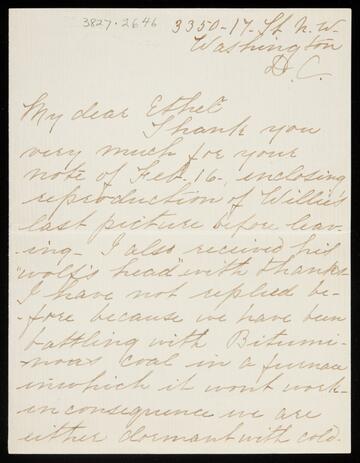 3827.2646
3350-17-St N.W.
Washington
D.C.
My dear Ethel
Thank you
very much for your
note of Feb. 16. inclosing
reproduction of Willie's
last picture before leav-
ing- I also received his
"wolf's head" with thanks
I have not replied be-
-fore because we have been
battling with Bitumi-
nous coal in a furnace
in which it wont work-
in consequence we are
either dormant with cold.